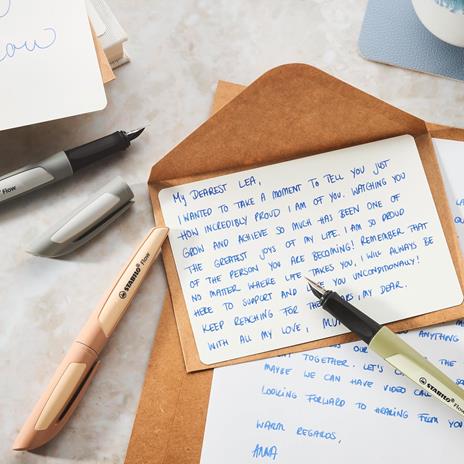 ow
STABILO Flow
MY DEAREST LEA,
I WANTED TO TAKE A MOMENT TO TELL YOU JUST
HOW INCREDIBLY PROUD I AM OF YOU. WATCHING YOU
GROW AND ACHIEVE SO MUCH HAS BEEN ONE OF
THE GREATEST JOYS OF MY LIFE. I AM SO PROUD
OF THE PERSON YOU ARE BECOMING! REMEMBER THAT
NO MATTER WHERE LIFE TAKES YOU, I WILL ALWAYS BE
HERE TO SUPPORT AND YOU UNCONDITIONALLY!
KEEP REACHING FOR THE , MY DEAR.
WITH ALL MY LOVE,
STABILO Flow
ANYTHING
OUR THE
T TOGETHER. LET'S
MAYBE WE CAN HAVE VIDEO CAL
LOOKING FORWARD TO HEARING FROM YOU
WARM REGARDS,
ANNA
STABILO Flow